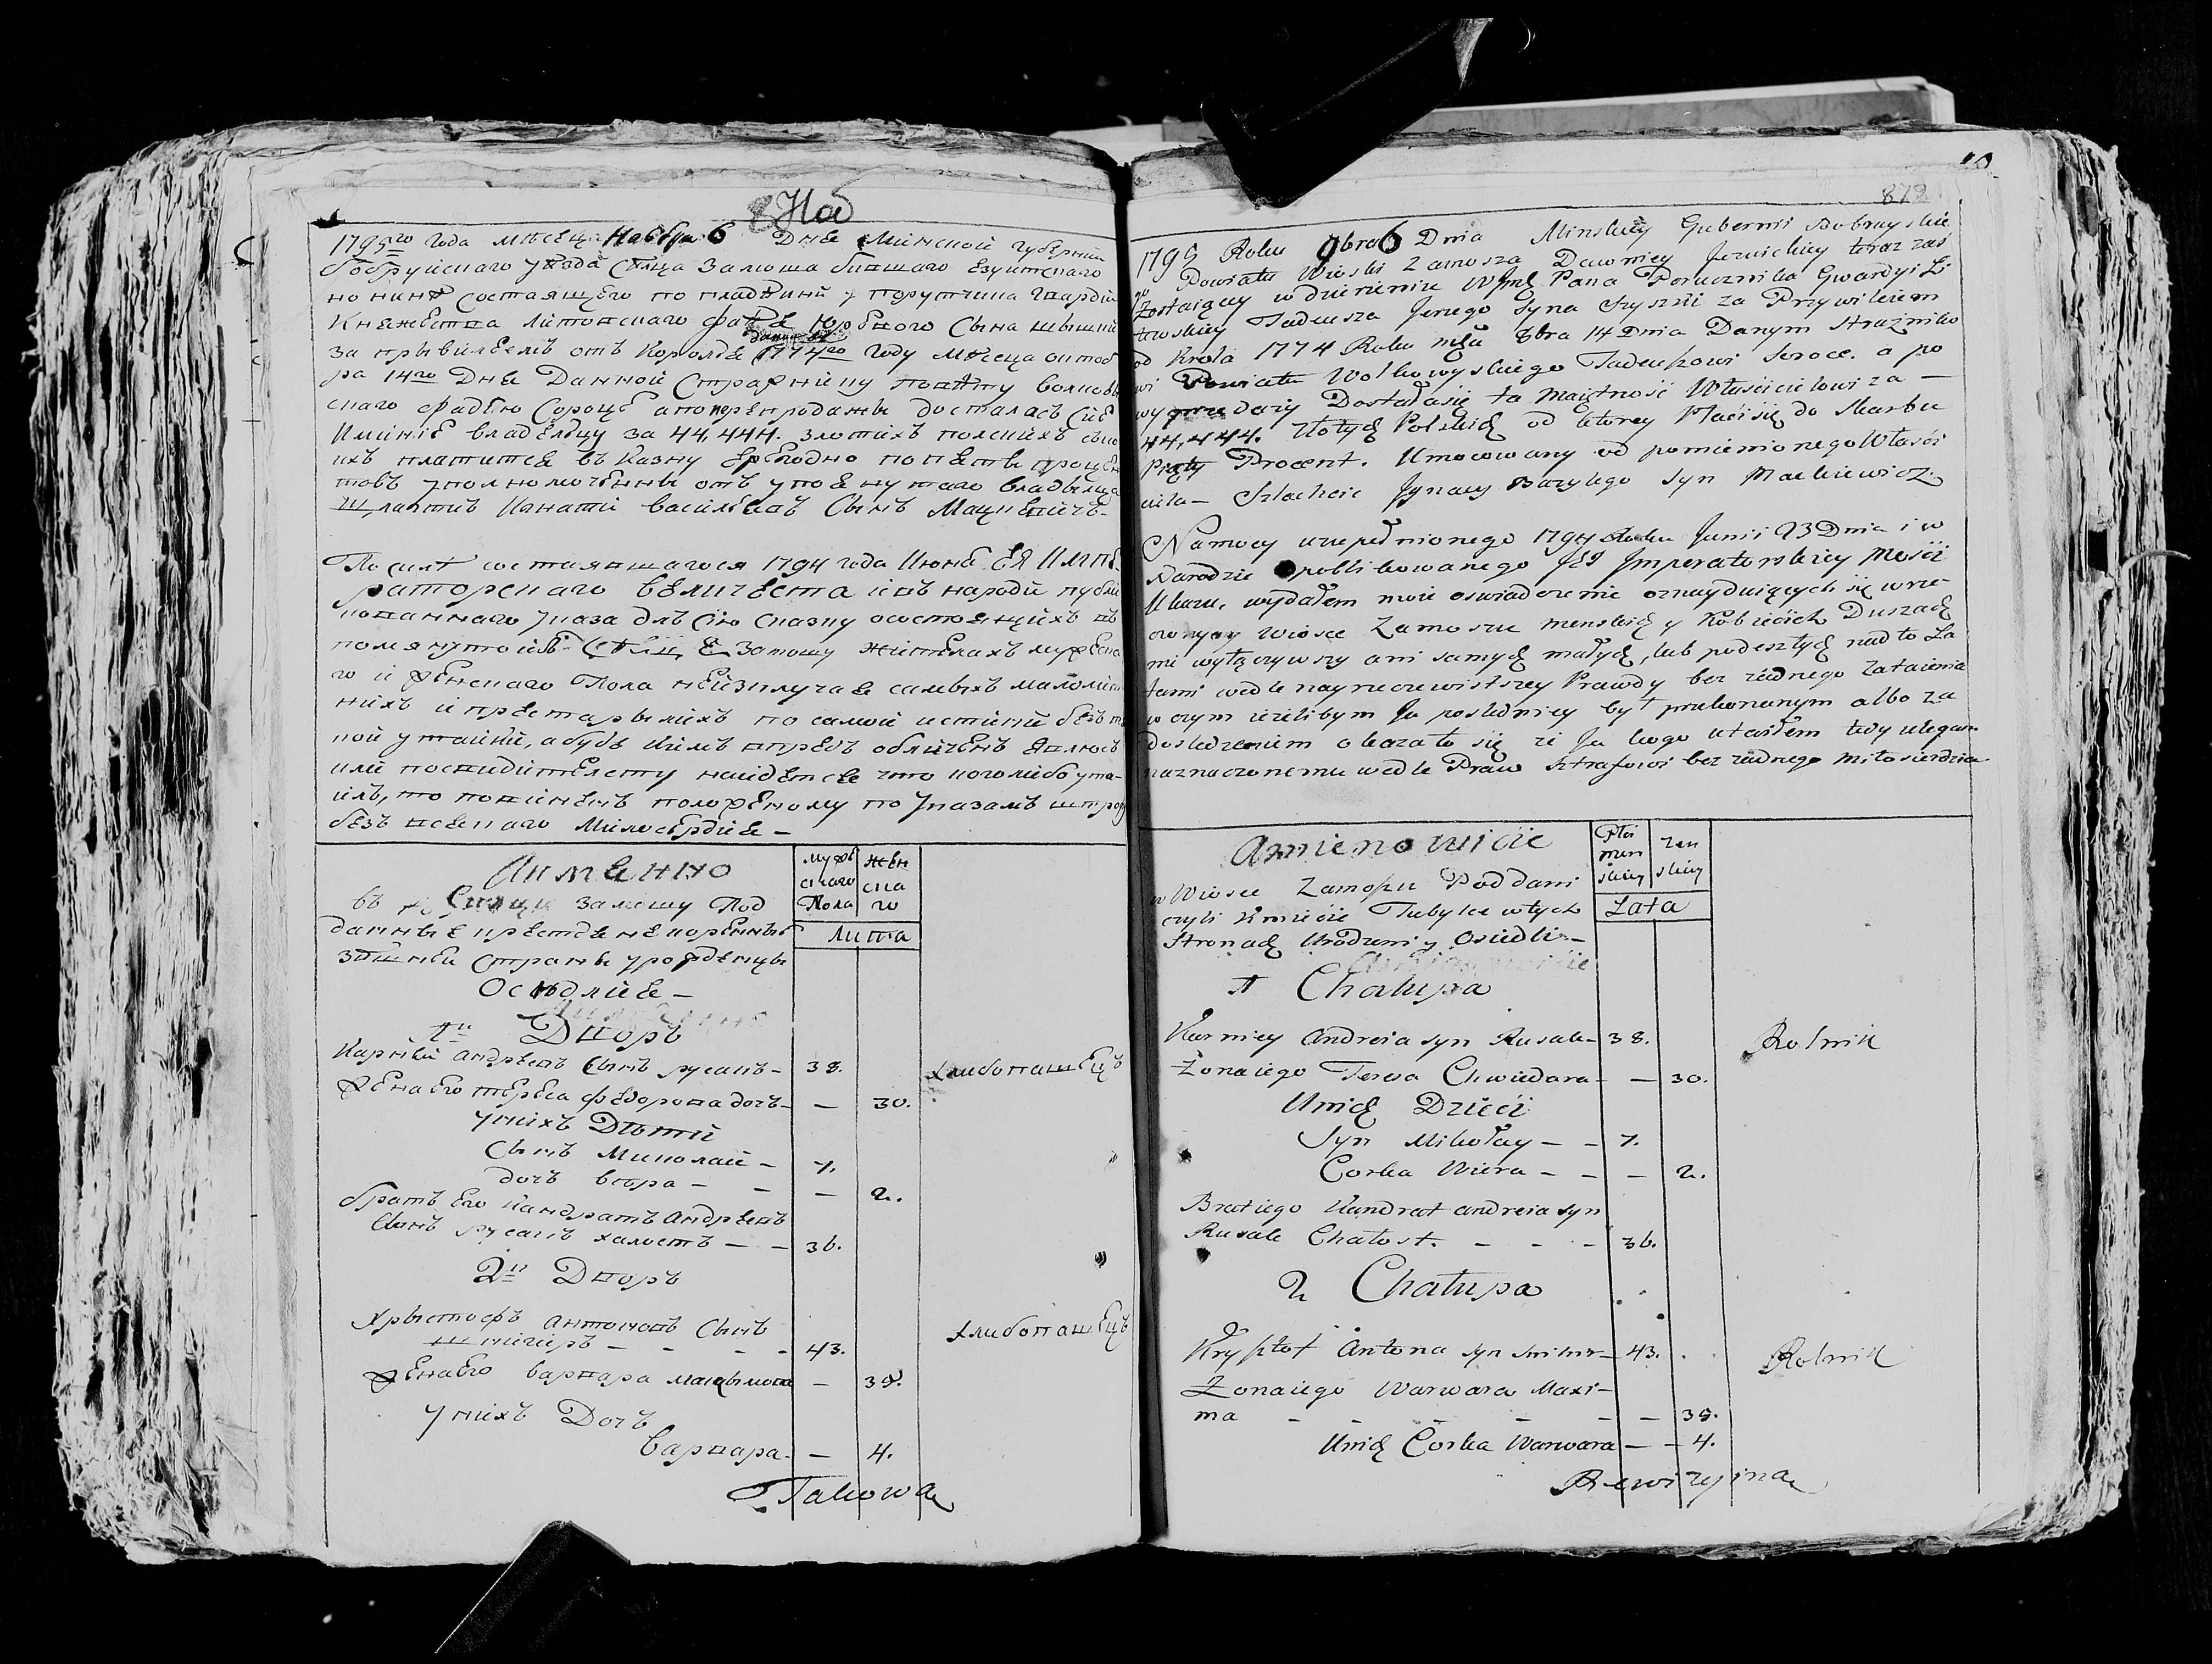 8 Над
1795го года месяца Ноября 6 Дня Минской губерніи
бобруйскаго уезда Сельца Замоша бывшаго Езуитскаго
но нине состаящего по владений у порутчика гвардіи
Княжества литовскаго
за прывилеемъ отъ Короля 1774го году месеца октоб
ра 14го Дня Данной Стражнику повету волковы
скаго фадею Сороце а по перепродажы досталась сие
Имініе владельцу за 44,444. злотихъ полскихъ
ихъ платится въ Казну ежегодно по пети процен
товъ уполномоченны отъ упомянутаго владельца
шляхтичъ Игнатій васильевъ Сынъ Мацкевичъ-
По силе состаявшагося 1794 года Июня ЕЯ ИМПЕ
раторскаго величества и въ народи публи
кованнаго указа далъ сию сказку о состоящихъ въ
помянутой Замошу жителахъ мужеска
го и женскаго Пола неизключая самыхъ малолет
нихъ и престарылихъ по самой истиний безъ
ной утайки, а будь кимъ впредъ обличенъ явлюсъ
или по свидителству найдется что кого либо ута-
илъ, то повиненъ положеному по Указамъ штрафу
безъ всекаго Милосердие -
Аименно
мужес
скаго
Пола
жен
ска
го
въ Замошу Под
данные крестяне коренные
здешнеи Страны урожденцы
Лита
Оседлие -
1й Дворъ
Карній андреевъ Сынъ русакъ - 38. хлибопашецъ
Жена Его тереса федорова дочъ - — 30.
У нихъ Дети
Сынъ Миколай - 7.
дочъ вера - - — 2.
братъ Его кандратъ андреевъ
Сынъ русакъ халостъ — - 36.
2й Дворъ
Хрыстофъ антоновъ Сынъ
шнигиръ - - - - 43. хлибопашецъ
Жена Его варвара макцымова — 39.
У нихъ Дочъ
Варвара - — 4.
Takowa
10
879
1795 Roku 9bra 6 Dnia Minskiey Gubernii Bobruyskie
go Powiatu Wioski Zamosza Dawniey Jezuickiey teraz zas
Zostaiącey w dzierzeniu Wgo Pana Porucznika Gwardyi Li
tewskiey Tadeusza Jerzego Syna Szyszki za Przywileiem
od Krola 1774 Roku mca 8bra 14 Dnia Danym Strażniko
wi Powiatu Wołkowyskiego Tadeuszowi Soroce. a po
wyprzedaży Dostała się ta Maiętność Właścicielowi za —
44,444. Złotych Polskich od ktorey Płaci się do Skarbu
Piąty Procent. Umocowany od pomienionego Właści
ciela - Szlachcic Jgnacy Bazylego Syn Mackiewicz.
Na mocy uzupełnionego 1794 Roku Junii 23 Dnia i w
Narodzie publikowanego JEJ Jmperatorskiey Mości
Ukazu, wydałem moie oswiadczenie o znayduiących się w rze
czoney Wiosce Zamoszu menskich y Kobiécich Duszach
nie wyłączywszy ani samych małych, lub podeszłych nad to La
tami wedle nayrzeczewistszey Prawdy bez żadnego Zataienia
w czym ieżelibym Ja posledniey był przekonanym albo za
dosledzeniem okazało się że Ja kogo utaiłem tedy ulegam
naznaczonemu wedle Praw sztrafowi bez żadnego miłosierdzia
Amienowicie
Płci
men
skiey
żen
skiey
w Wiosce Zamoszu Poddani
czyli Kmiécie Tubylce w tych
Stronach Urodzeni y Osiedli -
Lata
1 Chałupa
Karniey Andreia syn Rusak - 38. Rolnik
Żona iego Teresa Chwiedora - — 30.
U nich Dzieci
Syn Mikołay — - 7.
Corka Wiera - - — 2.
Brat iego Kandrat andreia syn
Rusak Chałost. - - - 36.
2 Chałupa
Krysztof Antona syn Snihir - 43. Rolnik
Żona iego Warwara Maxi-
ma - - - - - — 39.
U nich Corka Warwara — - 4.
Rewizyina